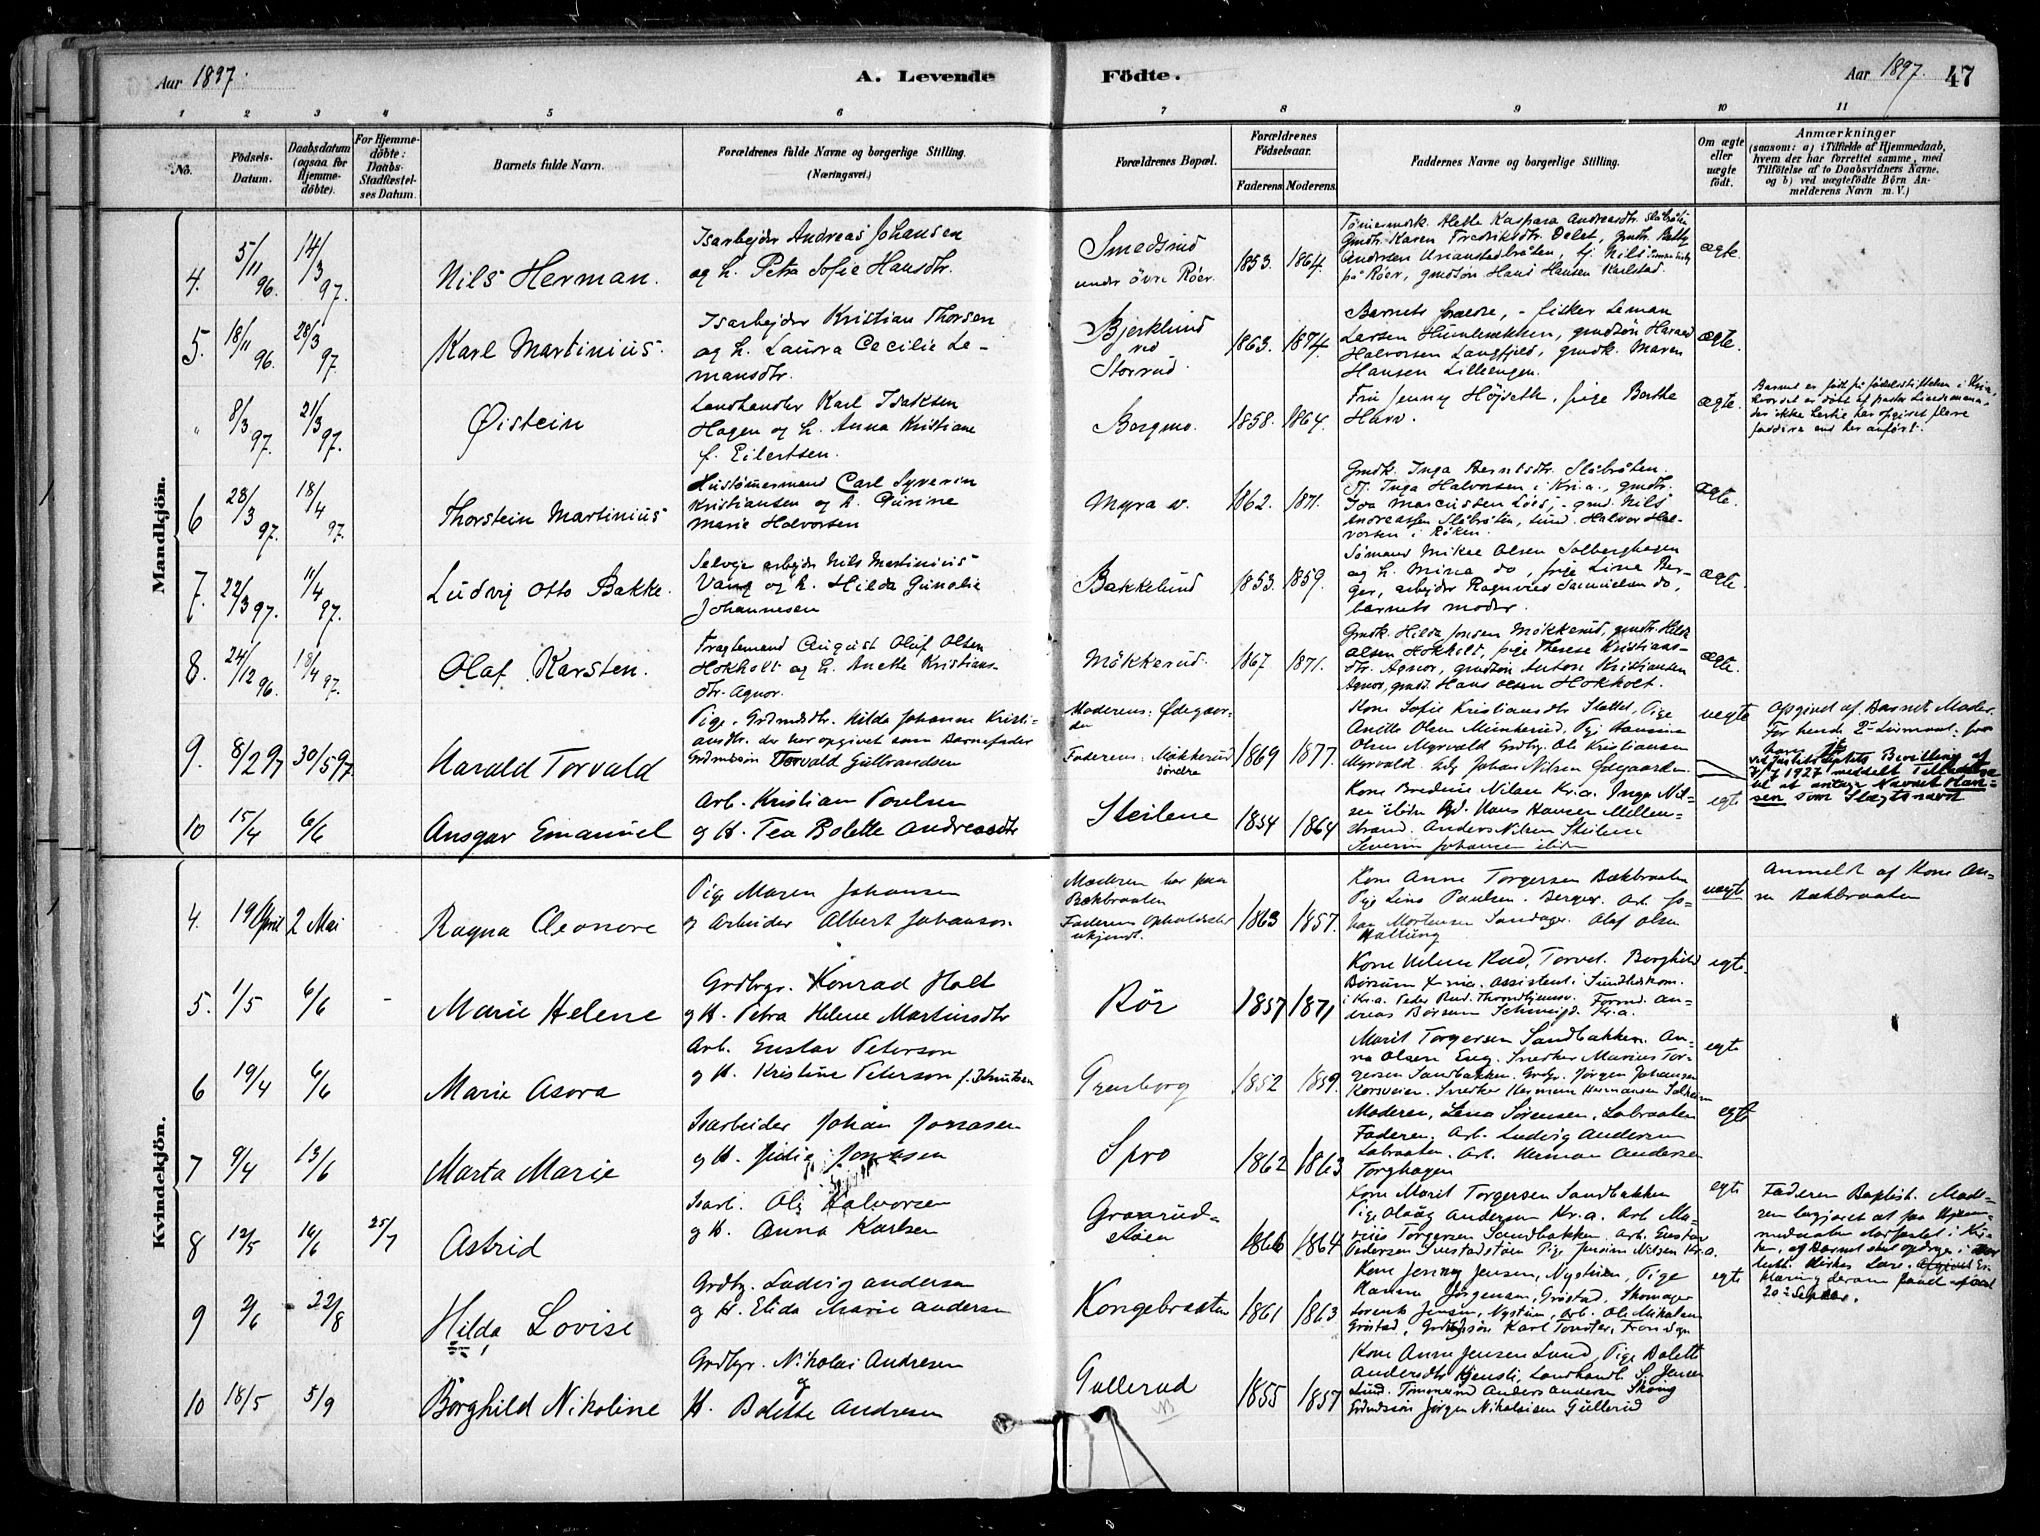 Aar 1897. A. Levende Födte. Aar 1897. 47
1 2 3 4 5 6 7 8 9 10 11
No.
Födsels-Datum.
Daabsdatum (ogsaa for Hjemmedöbte).
For Hjemmedöbte: Daabs-Stadfæstelses Datum.
Barnets fulde Navn.
Forældrenes fulde Navne og borgerlige Stilling. (Næringsvei.)
Forældrenes Bopæl.
Forældrenes Födselsaar.
Faderens. Moderens.
Faddernes Navne og borgerlige Stilling.
Om ægte eller uægte födt.
Anmærkninger
(saasom: a) i Tilfælde af Hjemmedaab,
hvem der har forrettet samme, med
Tilföielse af to Daabsvidners Navne,
og b) ved uægtefödte Børn An-
melderens Navn m. V.)
Mandkjön.
4. 5/11 96. 14/3 97. Nils Herman.
Isarbejder Andreas Johansen
og h. Petra Sofie Hansdtr.
Smedsrud
under övre Röer.
1853. 1864.
Gmdtr. Karen Fredriksdtr.
på Röer, gmdsön Hans Hansen Karlstad.
ægte.
5. 18/11 96. 28/3 97. Karl Martinius.
Isarbejder Kristian Thorsen
og h. Laura Cecilie Le-
mansdtr.
Bjerklund
ved
Storrud.
1863. 1874.
Barnets forældre, - fisker Leman
Larsen Humlebækken, gmdsön Harald
Halvorsen Langfjeld, gmdk. Maren
Hansen Lilleengen.
ægte.
" 8/3 97. 21/3 97. Øistein
Landhandler Karl Isaksen
Hagen og h. Anna Kristiane
f. Eilertsen.
Bergmo.
1858. 1864.
Fru Jenny Höjseth, pige Berthe
ægte.
Barnet er født på fødselsstiftelsen i Kria,
hvor det er døbt af pastor Lindemann,
der ikke har opgivet flere
faddere end her anført.
6 28/3 97. 18/4 97. Thorstein Martinius
Hustømmermand Carl Syverin
Kristiansen og h. Gunine
Marie Halvorsen
Myra
1862. 1871.
Gmdk. Inga Berntsdtr. Slåbråten.
Inga Halvorsen i Kr.a., gmdtr.
Andreassen Slåbråten, Halvor Hal-
vorsen i Röken.
ægte.
7. 22/3 97. 11/4 97. Ludvig Otto Bakke.
Selvejer arbejder Nils Martinius
Vang og h. Hilda Gunelie
Johannesen
Bakkelund
1853. 1859.
Sømand Mikal Olsen Solberghagen
og h. Mina do, pige Lina Ber-
ger, arbejder Samuelsen do,
barnets moder.
ægte.
8. 24/12 96. 18/4 97. Olaf Karsten.
Fragtemand August Oluf Olsen
Hokholt og h. Anette Kristians-
dtr. Agnor.
Mökkerud.
1867 1871.
Gmdk. Hilda Jonsen Mökkerud, gmdtr. Hilda
Olsen Hokholt, pige Therese Kristians-
dtr. Agnor, gmdsön Anton Kristiansen
Agnor, gmds. Hans Olsen Hokholt.
ægte.
9. 8/2 97 30/5 97. Harald Torvald
Pige. Grdmdsdtr. Hilda Johanne Kristi-
ansdtr. der har opgivet som Barnefader
Grdmdssön Torvald Gulbrandsen
Moderens: Ødegaar-
den
Faderens: Mökkerud
söndre
1869 1877.
Kone Sofie Kristiansdtr Slottet, Pige
Anette Olsen Munkerud, Pige Hansine
Olsen Myrvold Grdbr. Ole Kristiansen
Myrvold. Johan Nilsen Ødegaarden.
uegte
Opgivet af Barnets Moder.
For hende 2den Leiermaal. for
ham 1ste
ved Justitsdeptets Bevilling af
7/7 1927 meddelt Tilladelse
til at antage Navnet Han-
sen som Slægtsnavn
10 15/4 6/6 Ansgar Emanuel
Arb. Kristian Poulsen
og H. Tea Bolette Andreasdtr
Steilene
1854 1864
Kone Bredine Nilsen Kr.a. Inga Nil-
sen ibidm Hans Hansen Mellem-
strand. Anders Nilsen Steilene
Severin Johansen ibidm
egte
Kvindekjön.
4. 19 April 2 Mai Ragna Eleonore
Pige Maren Johansen
og Arbeider Albert Johanson
Moderen bor paa
Bækbraaten
Faderens Opholdssted
ukjendt.
1863 1857.
Kone Anne Torgersen Bækbraaten
Pige Lina Paulsen. Berger. Arb. Jo-
han Mortensen Sandager. Olaf Olsen
Hallung
uægte
Anmeldt af Kone An-
na Bækbraaten
5. 1/5 6/6 - Marie Helene
Grdbrgr. Konrad Holt
og H. Petra Helene Martinsdtr
Rör
1857 1871
Kone Helene Rud, Borghild
Börsum Assistent i Sundhedskom.
i Kr.a. Peder Rud. Throndhjemsv. Form. An-
dreas Börsum Schweigd. Kr.a.
egte.
6 19/4 6/6 Marie Asora
Arb. Gustav Peterson
og H. Kristine Peterson f. Knutsen
Grensborg
1852 1859.
Marit Torgersen Sandbakken. An-
na Olsen Eng. Snedker Marius Tor-
gersen Sandbakken. Grdbr. Jörgen Johansen
Korsveien. Snedker Herman Hermansen
egte
7 9/4 13/6 Marta Marie
Isarbeider Johan Jonasen
og H. Julie Jonasen
Spro
1862 1863
Moderen, Lena Sörensen, Labraaten
Faderen. Arb. Ludvig Andersen
Labraaten. Arb. Herman Andersen
Torghagen
egte
8 12/5 16/6 25/7 Astrid
Isarb. Ole Halvorsen
og H. Anna Karlsen
Granrud-
støen
1866 1864
Kone Marit Torgersen Sandbakken
Pige Olaug Andersen Kr.a. Arb. Ma-
rius Torgersen Sandbakken. Arb. Gustav
Pedersen Pige Nilsen Kr.a.
egte
Faderen Baptist. Mode-
ren begjæret at faa Hjemme-
daaben stadfæstet i Kir-
ken, af Barnet skal opdrages i den
luth. Kirkes Lære. Er-
klæring derom
20de
9 2/6 22/8 Hilda Lovise
Grdbr. Ludvig Andersen
og H. Elida Marie Andersen
Kongebraaten
1861 1863
Kone Jenny Jensen, Nystuen, Pige
Hanna Jörgensen, Gröstad. Skomager
Jensen, Nystuen, Arb. Ole Mikalsen
Gröstad,
egte
10 18/5 5/9 Borghild Nikoline
Grdbgr. Nikolai Andresen
og
H. Bolette Andresen
Gullerud
1855 1857
Kone Anne Jensen Lund, Pige Bolette
Andersdtr Landhandl. S. Jensen
Lund. Tömmermd Anders Andersen Skoug
Grdmdssön Jörgen Nikolaisen Gullerud